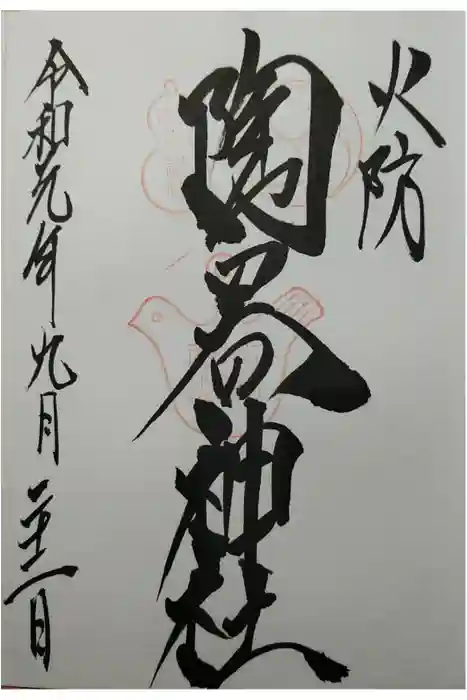 火防
陶器神社
令和元年九月二十二日